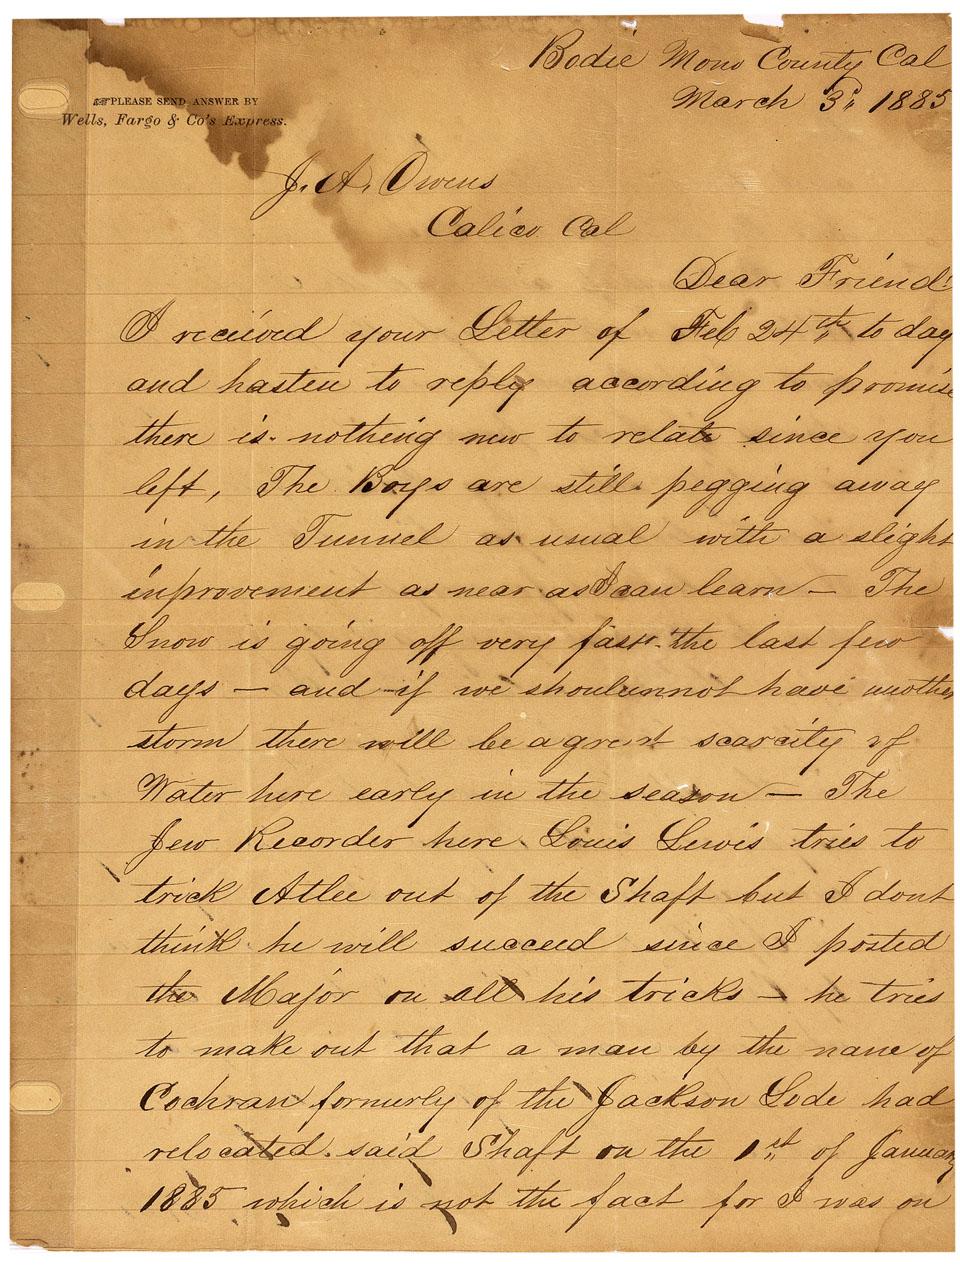 Bodie Mono County Cal
March 3" 1885
PLEASE SEND ANSWER BY
Wells, Fargo & Co's Express.
J. A. Owens
Calico Cal
Dear Friend:
I received your Letter of Feb 24th to day
and hasten to reply according to promise
there is nothing new to relate since you
left, The Boys are still pegging away
in the Tunnel as usual with a slight
inprovement as near as I can learn — The
Snow is going off very fast the last few
days — and if we should not have another
storm there will be a great scarcity of
Water here early in the season — The
Jew Recorder here Louis Lewis tries to
trick Atlee out of the Shaft but I dont
think he will succeed since I posted
the Major on all his tricks — he tries
to make out that a man by the name of
Cochran formerly of the Jackson Lode had
relocated said Shaft on the 1st of January
1885 which is not the fact for I was on